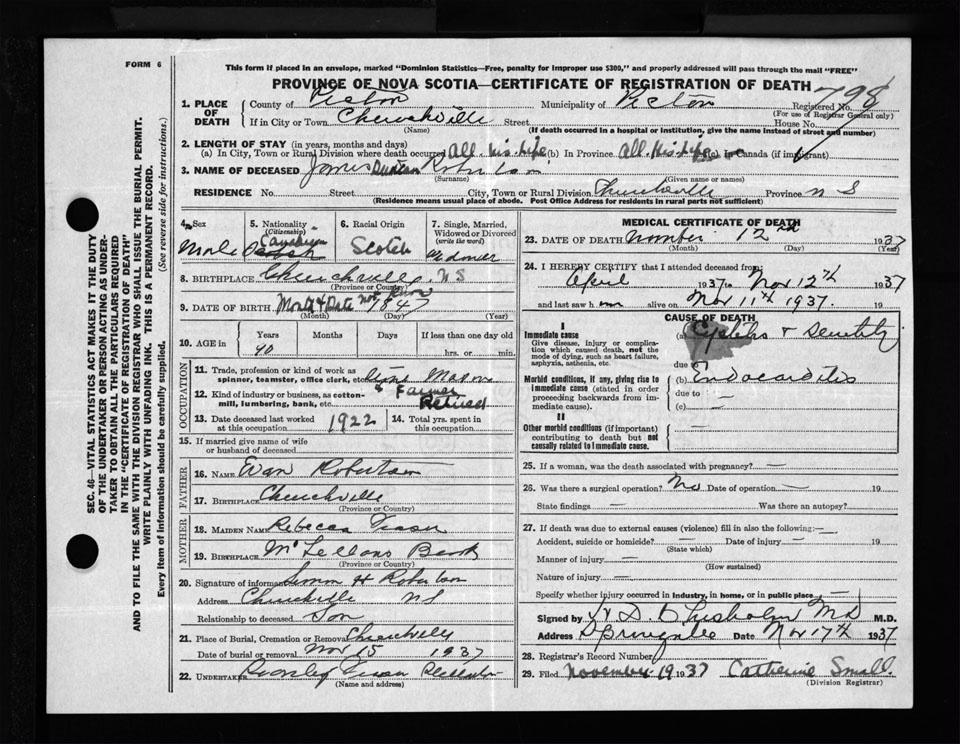 FORM 6
This form if placed in an envelope, marked "Dominion Statistics—Free, penalty for improper use $300," and properly addressed will pass through the mail "FREE"
PROVINCE OF NOVA SCOTIA—CERTIFICATE OF REGISTRATION OF DEATH
798
1. PLACE OF DEATH County of Pictou Municipality of Pictou Registered No.
(For use of Registrar General only)
If in City or Town Churchville Street House No.
(Name) (If death occurred in a hospital or institution, give the name instead of street and number)
2. LENGTH OF STAY (in years, months and days)
(a) In City, Town or Rural Division where death occurred All his life (b) In Province All his life (c) In Canada (if immigrant)
3. NAME OF DECEASED James Duncan Robertson
(Surname) (Given name or names)
RESIDENCE No. Street City, Town or Rural Division Churchville Province N S
(Residence means usual place of abode. Post Office Address for residents in rural parts not sufficient)
4. Sex 5. Nationality (Citizenship) 6. Racial Origin 7. Single, Married, Widowed or Divorced (write the word)
Male Canadian Scotch Widower
8. BIRTHPLACE Churchville NS
(Province or Country)
9. DATE OF BIRTH Month & Date not known 1847
(Month) (Day) (Year)
10. AGE in Years Months Days If less than one day old
90 hrs. or min.
OCCUPATION
11. Trade, profession or kind of work as spinner, teamster, office clerk, etc. Stone Mason
12. Kind of industry or business, as cotton-mill, lumbering, bank, etc. & Farmer Retired
13. Date deceased last worked at this occupation 1922 14. Total yrs. spent in this occupation
15. If married give name of wife or husband of deceased
FATHER
16. NAME Evan Robertson
17. BIRTHPLACE Churchville
(Province or Country)
MOTHER
18. MAIDEN NAME Rebecca Fraser
19. BIRTHPLACE McLellans Brook
(Province or Country)
20. Signature of informant H Robertson
Address Churchville NS
Relationship to deceased Son
21. Place of Burial, Cremation or Removal Churchville
Date of burial or removal Nov 15 1937
22. UNDERTAKER
(Name and address)
MEDICAL CERTIFICATE OF DEATH
23. DATE OF DEATH November 12th 1937
(Month) (Day) (Year)
24. I HEREBY CERTIFY that I attended deceased from
April 1937 to Nov 12th 1937
and last saw h im alive on Nov 11th 1937. 19
CAUSE OF DEATH
I
Immediate cause (a) Cystitis & Senility
Give disease, injury or complication which caused death, not the mode of dying, such as heart failure, asphyxia, asthenia, etc.
due to
Morbid conditions, if any, giving rise to immediate cause (stated in order proceeding backwards from immediate cause). (b) Endocarditis
due to —
(c) —
II
Other morbid conditions (if important) contributing to death but not causally related to immediate cause.
25. If a woman, was the death associated with pregnancy? —
26. Was there a surgical operation? No Date of operation — 19
State findings — Was there an autopsy?
27. If death was due to external causes (violence) fill in also the following:—
Accident, suicide or homicide? — Date of injury — 19
(State which)
Manner of injury —
(How sustained)
Nature of injury —
Specify whether injury occurred in industry, in home, or in public place —
Signed by H D Chisholm MD M.D.
Address Springville Date Nov 17th 1937
28. Registrar's Record Number
29. Filed November 19 1937 Catherine Small
(Division Registrar)
SEC. 46—VITAL STATISTICS ACT MAKES IT THE DUTY
OF THE UNDERTAKER OR PERSON ACTING AS UNDER-
TAKER TO OBTAIN ALL THE PARTICULARS REQUIRED
IN THE "CERTIFICATE OF REGISTRATION OF DEATH"
AND TO FILE THE SAME WITH THE DIVISION REGISTRAR WHO SHALL ISSUE THE BURIAL PERMIT.
WRITE PLAINLY WITH UNFADING INK. THIS IS A PERMANENT RECORD.
Every item of information should be carefully supplied. (See reverse side for instructions.)